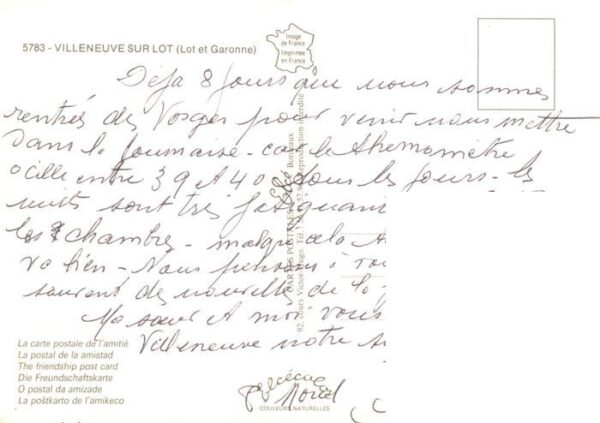 5783 - VILLENEUVE SUR LOT (Lot et Garonne)
Image
de France
Imprimée
en France
Déjà 8 jours que nous sommes
rentrés des Vosges pour venir nous mettre
dans la fournaise - car le thermomètre
ocille entre 39 et 40 tous les jours - les
nuits sont très
chambres - malgré cela
va bien - Nous pensons à
souvent des nouvelles de
Ma sœur et moi vous
Villeneuve notre
La carte postale de l'amitié
La postal de la amistad
The friendship post card
Die Freundschaftskarte
O postal da amizade
La poŝtkarto de l'amikeco
COULEURS NATURELLES
92, cours Victor Hugo.
Reproduction interdite